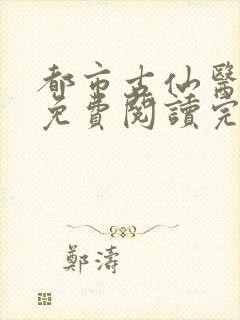 都市古仙醫
免費閱讀完
鄭濤